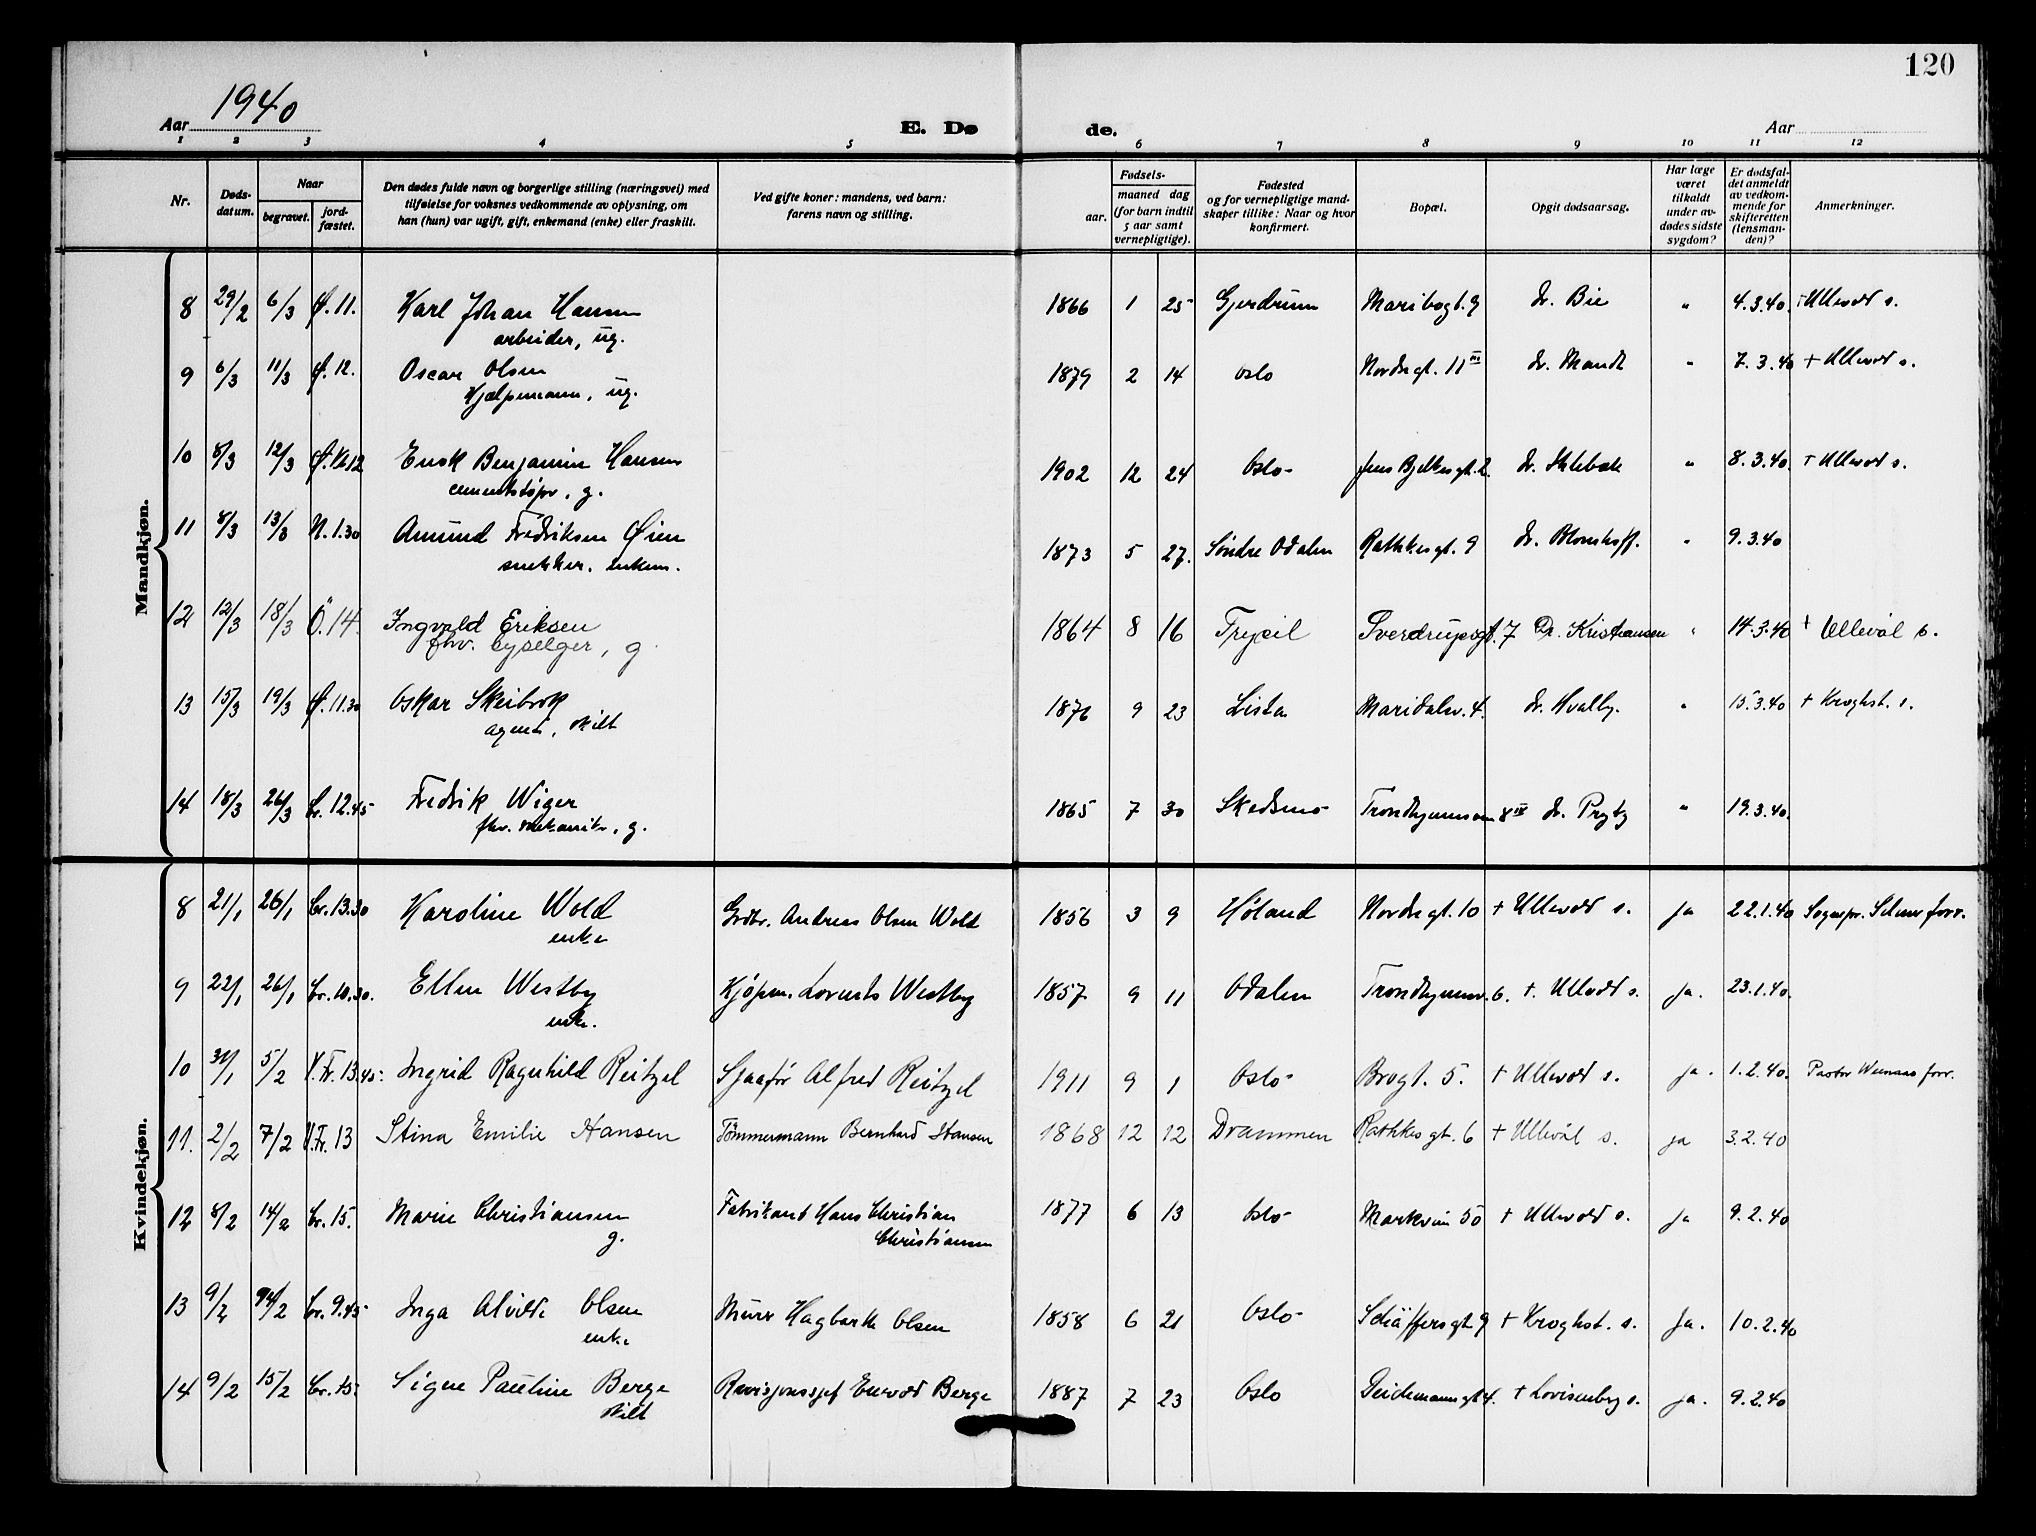 120
Aar 1940
E. Dø de.
Aar
1 2 3 4 5 6 7 8 9 10 11 12
Nr.
Døds-
datum.
Naar
begravet.
jord-
fæstet.
Den dødes fulde navn og borgerlige stilling (næringsvei) med
tilføielse for voksnes vedkommende av oplysning, om
han (hun) var ugift, gift, enkemand (enke) eller fraskilt.
Ved gifte koner: mandens, ved barn:
farens navn og stilling.
Fødsels-
aar.
maaned dag
(for barn indtil
5 aar samt
vernepligtige).
Fødested
og for vernepligtige mand-
skaper tillike: Naar og hvor
konfirmert.
Bopæl.
Opgit dødsaarsag.
Har læge
været
tilkaldt
under av-
dødes sidste
sygdom?
Er dødsfal-
det anmeldt
av vedkom-
mende for
skifteretten
(lensman-
den)?
Anmerkninger.
Mandkjøn.
8 29/2 6/3 Ø. 11. Karl Johan Hansen 1866 1 25 Gjerdrum Maribogt. 9 Dr. Bie " 4.3.40. + Ullevål s.
arbeider, ug.
9 6/3 11/3 Ø. 12. Oscar Olsen 1879 2 14 Oslo Nordregt. 11 III Dr. Mandt " 7.3.40 + Ullevål s.
Hjælpemann, ug.
10 8/3 12/3 Ø. ½12 Enok Benjamin Hansen 1902 12 24 Oslo Jens Bjelkesgt. 2. Dr. " 8.3.40. + Ullevål s.
cementstøper, g.
11 8/3 13/3 N. 1.30 Amund Fredriksen Øien 1873 5 27. Søndre Odalen Rathkesgt. 9 Dr. Blomhoff. " 9.3.40
snekker. enkem.
12 12/3 18/3 Ö. 14. Ingvald Eriksen 1864 8 16 Trysil Sverdrupsgt. 7 Dr. Kristiansen " 14.3.40 + Ullevål s.
fhv. byselger, g.
13 15/3 19/3 Ø. 11.30 Oskar Skeibrok 1876 9 23 Lista Maridalsv. 4. Dr. Hvalby. " 15.3.40 + Kroghst. s.
agent, skilt
14 18/3 26/3 Cr. 12.45 Fredrik Wiger 1865 7 30 Skedsmo Trondhjemsvn 8 IV Dr. Pryty " 19.3.40.
fhv. mekanik., g.
Kvindekjøn.
8 21/1 26/1 Cr. 13.30 Karoline Wold Grdbr. Andreas Olsen Wold 1856 3 9 Høland Nordregt. 10 + Ullevål s. Ja 22.1.40 Sognepr. Selmer forr.
enke
9 22/1 26/1 Cr. 10.30. Ellen Westby Kjøpm. Lorents Westby 1857 9 11 Odalen Trondhjemsv. 6. +. Ullevål s. Ja. 23.1.40.
enke.
10 31/1 5/2 V. Fr. 13.45. Ingrid Ragnhild Reitzel Sjaafør Alfred Reitzel 1911 9 1 Oslo Brogt. 5. + Ullevål s. Ja. 1.2.40. Pastor Weenaas forr.
11. 2/2 7/2 V. Fr. 13 Stina Emilie Hansen Tømmermann Bernhard Hansen 1868 12 12 Drammen Rathkesgt. 6 + Ullevål s. Ja 3.2.40
12 8/2 14/2 Cr. 15. Marie Christiansen Fabrikant Hans Christian 1877 6 13 Oslo Markvein 50 + Ullevål s. Ja 9.2.40
g. Christiansen
13 9/2 14/2 Cr. 9.45 Inga Alvilde Olsen Murer Hagbarth Olsen 1858 6 21 Oslo Schäffersgt. 9 + Kroghst. s. Ja. 10.2.40
enke
14 9/2 15/2 Cr. 15. Signe Pauline Berge Revisjonssjef Enevold Berge 1887 7 23 Oslo Deichmannsgt. 4. + Lovisenberg s. Ja. 9.2.40
skilt